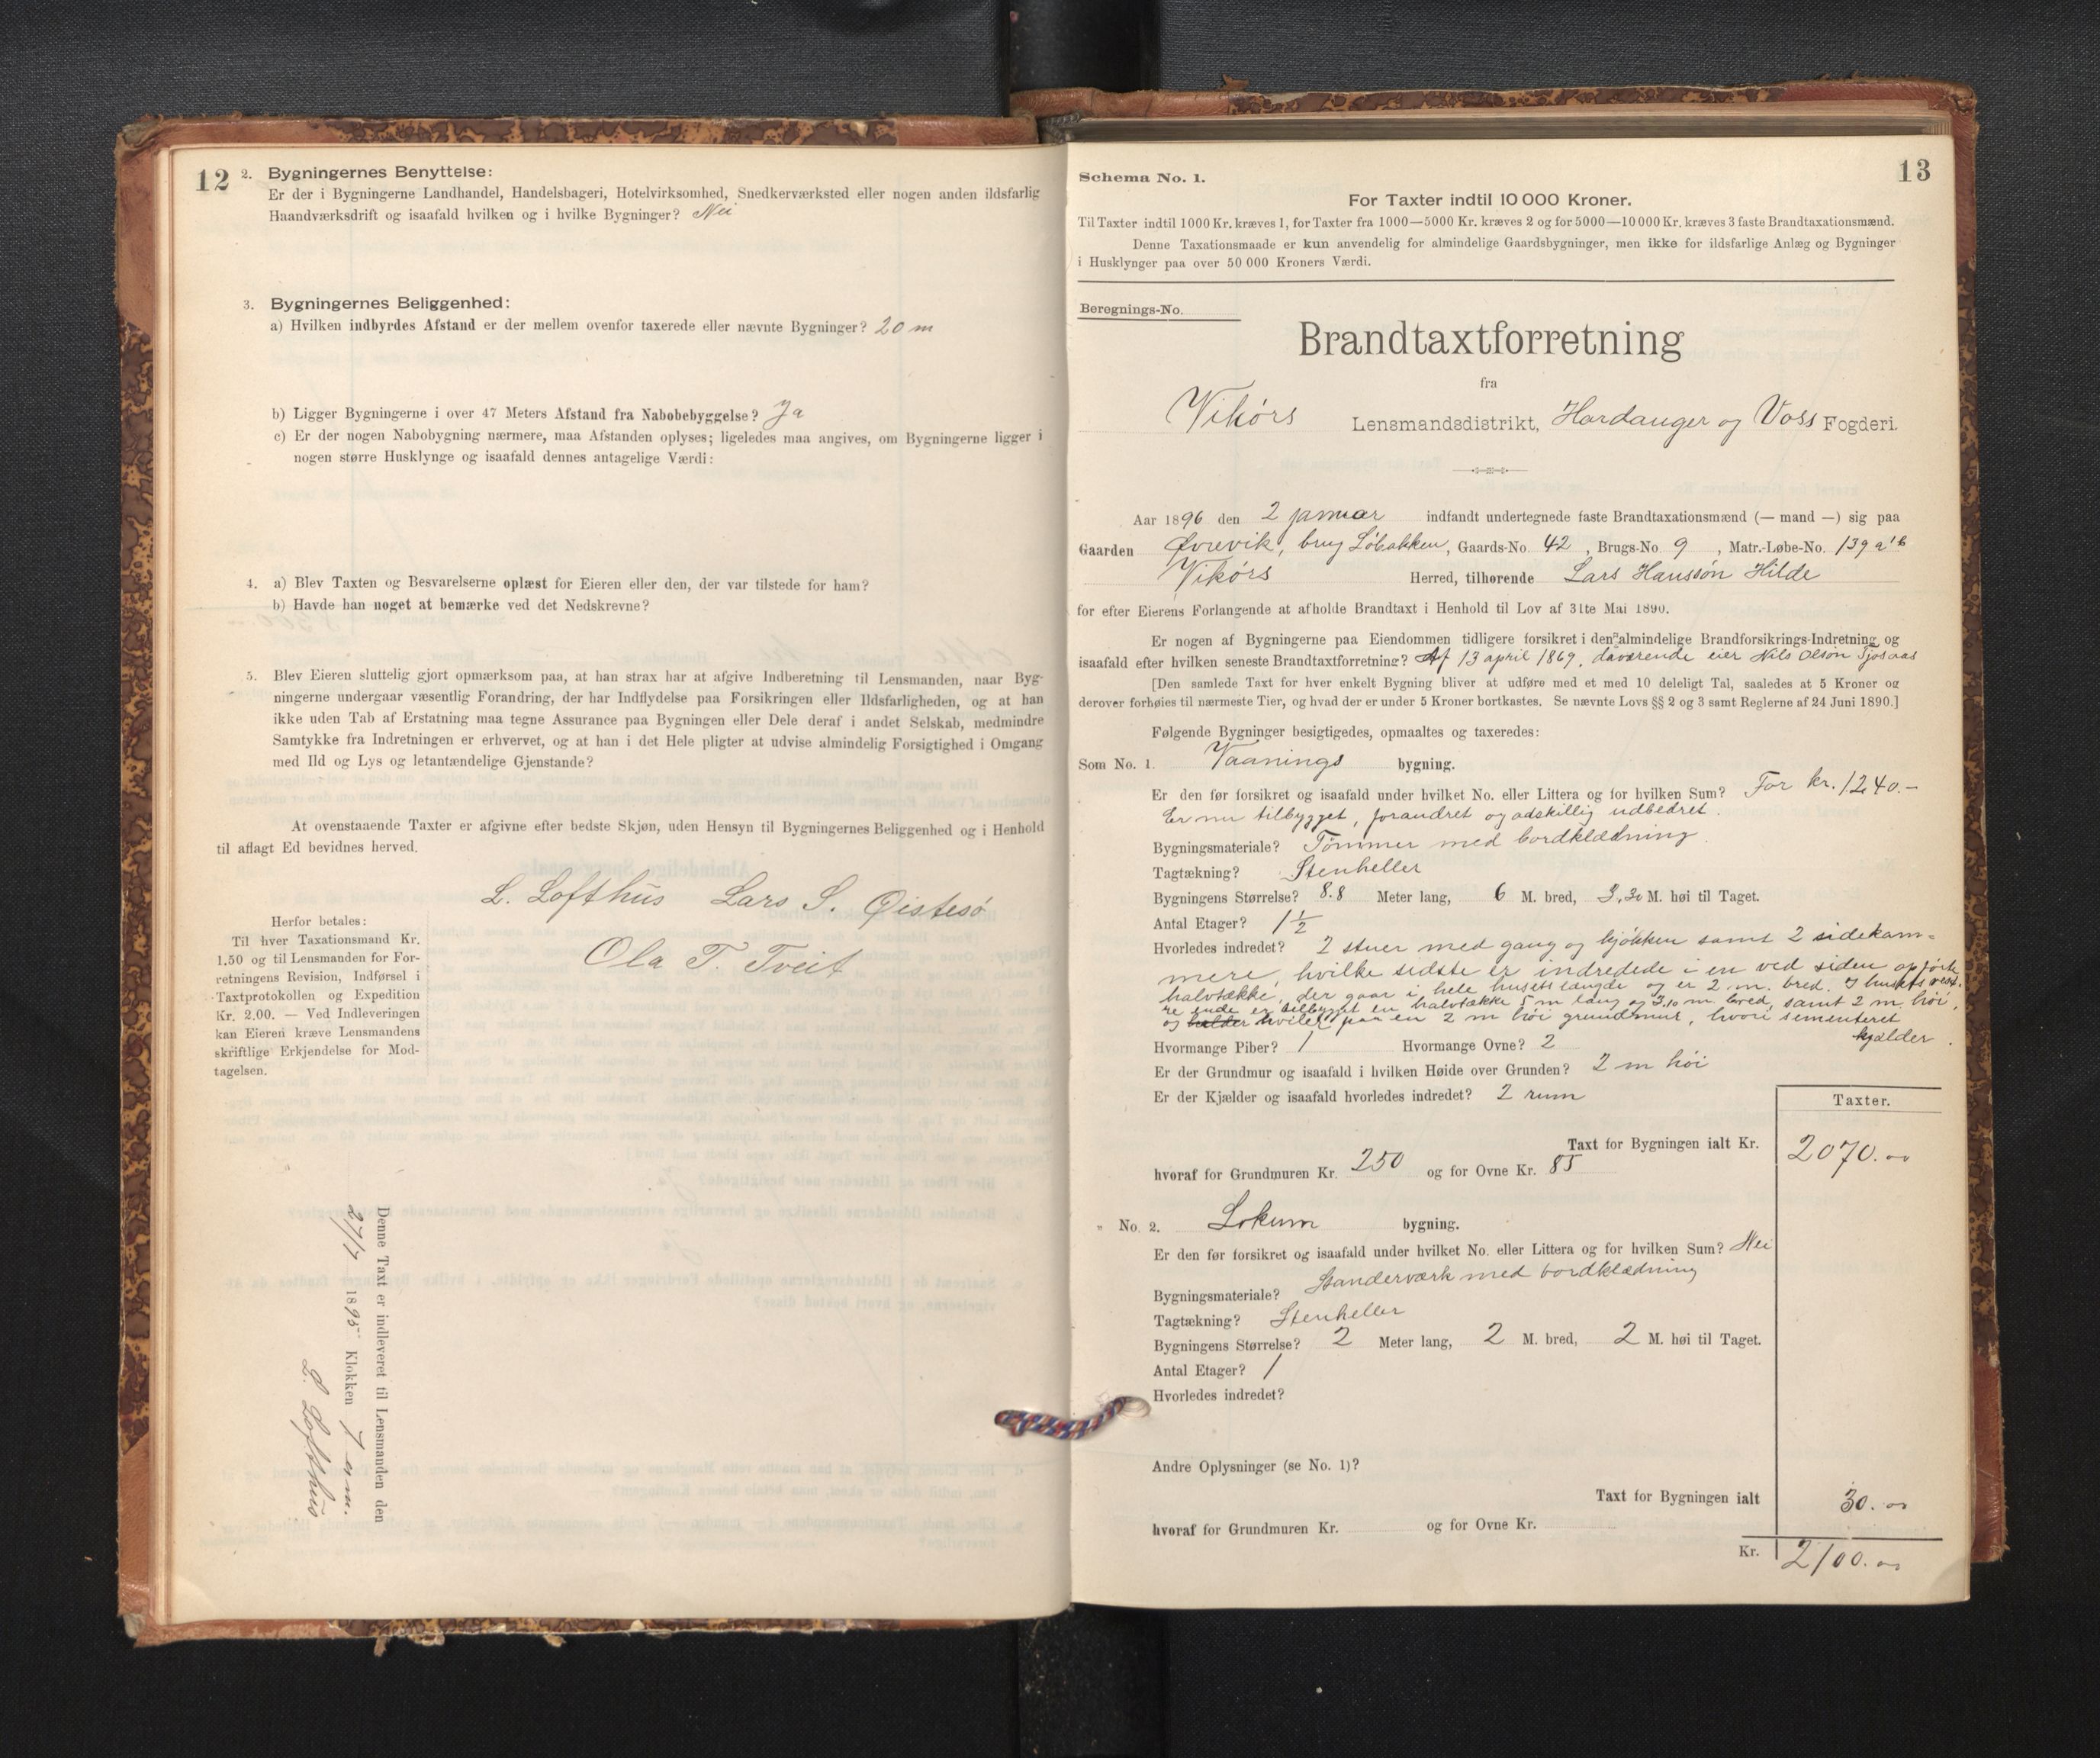 12
2. Bygningernes Benyttelse:
Er der i Bygningerne Landhandel, Handelsbageri, Hotelvirksomhed, Snedkerværksted eller nogen anden ildsfarlig
Haandværksdrift og isaafald hvilken og i hvilke Bygninger? Nei
3. Bygningernes Beliggenhed:
a) Hvilken indbyrdes Afstand er der mellem ovenfor taxerede eller nævnte Bygninger? 20 m
b) Ligger Bygningerne i over 47 Meters Afstand fra Nabobebyggelse? Ja
c) Er der nogen Nabobygning nærmere, maa Afstanden oplyses; ligeledes maa angives, om Bygningerne ligger i
nogen større Husklynge og isaafald dennes antagelige Værdi:
4. a) Blev Taxten og Besvarelserne oplæst for Eieren eller den, der var tilstede for ham?
b) Havde han noget at bemærke ved det Nedskrevne?
5. Blev Eieren sluttelig gjort opmærksom paa, at han strax har at afgive Indberetning til Lensmanden, naar Byg-
ningerne undergaar væsentlig Forandring, der har Indflydelse paa Forsikringen eller Ildsfarligheden, og at han
ikke uden Tab af Erstatning maa tegne Assurance paa Bygningen eller Dele deraf i andet Selskab, medmindre
Samtykke fra Indretningen er erhvervet, og at han i det Hele pligter at udvise almindelig Forsigtighed i Omgang
med Ild og Lys og letantændelige Gjenstande?
At ovenstaaende Taxter er afgivne efter bedste Skjøn, uden Hensyn til Bygningernes Beliggenhed og i Henhold
til aflagt Ed bevidnes herved.
L. Lofthus Lars S. Øistesø
Ola T. Tveit
Herfor betales:
Til hver Taxationsmand Kr.
1.50 og til Lensmanden for For-
retningens Revision, Indførsel i
Taxtprotokollen og Expedition
Kr. 2.00. — Ved Indleveringen
kan Eieren kræve Lensmandens
skriftlige Erkjendelse for Mod-
tagelsen.
Denne Taxt er indleveret til Lensmanden den
27/7 1895 Klokken 7 em.
L. Lofthus
13
Schema No. 1.
For Taxter indtil 10 000 Kroner.
Til Taxter indtil 1000 Kr. kræves 1, for Taxter fra 1000—5000 Kr. kræves 2 og for 5000—10 000 Kr. kræves 3 faste Brandtaxationsmænd.
Denne Taxationsmaade er kun anvendelig for almindelige Gaardsbygninger, men ikke for ildsfarlige Anlæg og Bygninger
i Husklynger paa over 50 000 Kroners Værdi.
Beregnings-No.
Brandtaxtforretning
fra
Vikørs Lensmandsdistrikt, Hardanger og Voss Fogderi.
Aar 1896 den 2 januar indfandt undertegnede faste Brandtaxationsmænd (— mand —) sig paa
Gaarden Øvrevik, brug Løbakken, Gaards-No. 42, Brugs-No. 9, Matr.-Løbe-No. 139 a'b
Vikørs Herred, tilhørende Lars Hanssøn Hilde
for efter Eierens Forlangende at afholde Brandtaxt i Henhold til Lov af 31te Mai 1890.
Er nogen af Bygningerne paa Eiendommen tidligere forsikret i den almindelige Brandforsikrings-Indretning og
isaafald efter hvilken seneste Brandtaxtforretning? Af 13 april 1869, daværende eier Nils Olsøn Tjosaas
[Den samlede Taxt for hver enkelt Bygning bliver at udføre med et med 10 deleligt Tal, saaledes at 5 Kroner og
derover forhøies til nærmeste Tier, og hvad der er under 5 Kroner bortkastes. Se nævnte Lovs §§ 2 og 3 samt Reglerne af 24 Juni 1890.]
Følgende Bygninger besigtigedes, opmaaltes og taxeredes:
Som No. 1. Vaanings bygning.
Er den før forsikret og isaafald under hvilket No. eller Littera og for hvilken Sum? For kr. 1240.-
Er nu tilbygget, forandret og adskillig udbedret.
Bygningsmateriale? Tømmer med bordklædning.
Tagtækning? Stenheller
Bygningens Størrelse? 8.8 Meter lang, 6 M. bred, 3,30 M. høi til Taget.
Antal Etager? 1 1/2
Hvorledes indredet? 2 stuer med gang og kjøkken samt 2 sidekam=
mere, hvilke sidste er indredede i en ved siden opførte
halvtække, der gaar i hele husets længde og er 2 m. bred. I husets vest-
re ende er tilbygget en halvtække 5 m lang og 3,10 m. bred, samt 2 m høi,
og hviler paa en 2 m høi grundmur, hvori sementeret
kjælder.
Hvormange Piber? 1 Hvormange Ovne? 2
Er der Grundmur og isaafald i hvilken Høide over Grunden? 2 m høi
Er der Kjælder og isaafald hvorledes indredet? 2 rum
Taxter.
Taxt for Bygningen ialt Kr. 2070.00
hvoraf for Grundmuren Kr. 250 og for Ovne Kr. 85
" No. 2. Lokum bygning.
Er den før forsikret og isaafald under hvilket No. eller Littera og for hvilken Sum? Nei
Bygningsmateriale? Standerværk med bordklædning
Tagtækning? Stenheller
Bygningens Størrelse? 2 Meter lang, 2 M. bred, 2 M. høi til Taget.
Antal Etager? 1
Hvorledes indredet?
Andre Oplysninger (se No. 1)?
Taxt for Bygningen ialt 30.00
hvoraf for Grundmuren Kr. og for Ovne Kr.
Kr. 2100.00